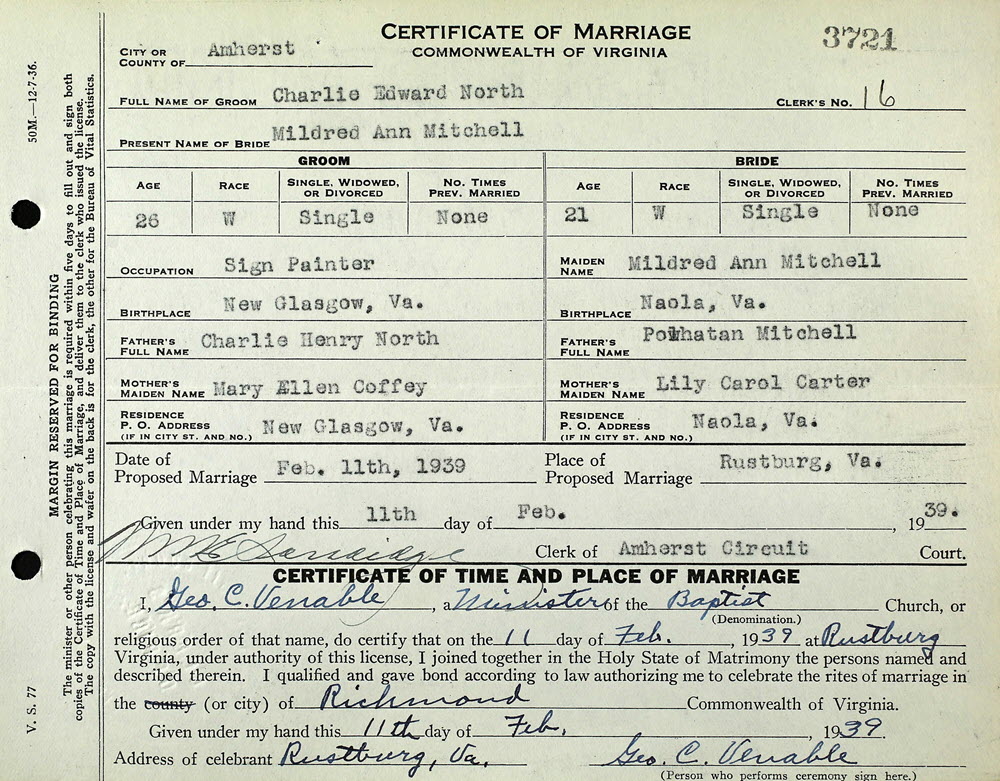 CERTIFICATE OF MARRIAGE
COMMONWEALTH OF VIRGINIA
3721
CITY OR COUNTY OF Amherst
FULL NAME OF GROOM Charlie Edward North CLERK'S NO. 16
PRESENT NAME OF BRIDE Mildred Ann Mitchell
GROOM BRIDE
AGE RACE SINGLE, WIDOWED, OR DIVORCED NO. TIMES PREV. MARRIED AGE RACE SINGLE, WIDOWED, OR DIVORCED NO. TIMES PREV. MARRIED
26 W Single None 21 W Single None
OCCUPATION Sign Painter MAIDEN NAME Mildred Ann Mitchell
BIRTHPLACE New Glasgow, Va. BIRTHPLACE Naola, Va.
FATHER'S FULL NAME Charlie Henry North FATHER'S FULL NAME Powhatan Mitchell
MOTHER'S MAIDEN NAME Mary Ellen Coffey MOTHER'S MAIDEN NAME Lily Carol Carter
RESIDENCE P. O. ADDRESS (IF IN CITY ST. AND NO.) New Glasgow, Va. RESIDENCE P. O. ADDRESS (IF IN CITY ST. AND NO.) Naola, Va.
Date of Proposed Marriage Feb. 11th, 1939 Place of Proposed Marriage Rustburg, Va.
Given under my hand this 11th day of Feb. , 1939.
Sandidge Clerk of Amherst Circuit Court.
CERTIFICATE OF TIME AND PLACE OF MARRIAGE
I, Geo. C. Venable, a Minister of the Baptist Church, or
(Denomination.)
religious order of that name, do certify that on the 11 day of Feb. , 1939 at Rustburg
Virginia, under authority of this license, I joined together in the Holy State of Matrimony the persons named and
described therein. I qualified and gave bond according to law authorizing me to celebrate the rites of marriage in
the county (or city) of Richmond Commonwealth of Virginia.
Given under my hand this 11th day of Feb. , 1939.
Address of celebrant Rustburg, Va. Geo. C. Venable
(Person who performs ceremony sign here.)
V. S. 77 50M.—12-7-36.
MARGIN RESERVED FOR BINDING
The minister or other person celebrating this marriage is required within five days to fill out and sign both
copies of the Certificate of Time and Place of Marriage, and deliver them to the clerk who issued the license.
The copy with the license and wafer on the back is for the clerk, the other for the Bureau of Vital Statistics.